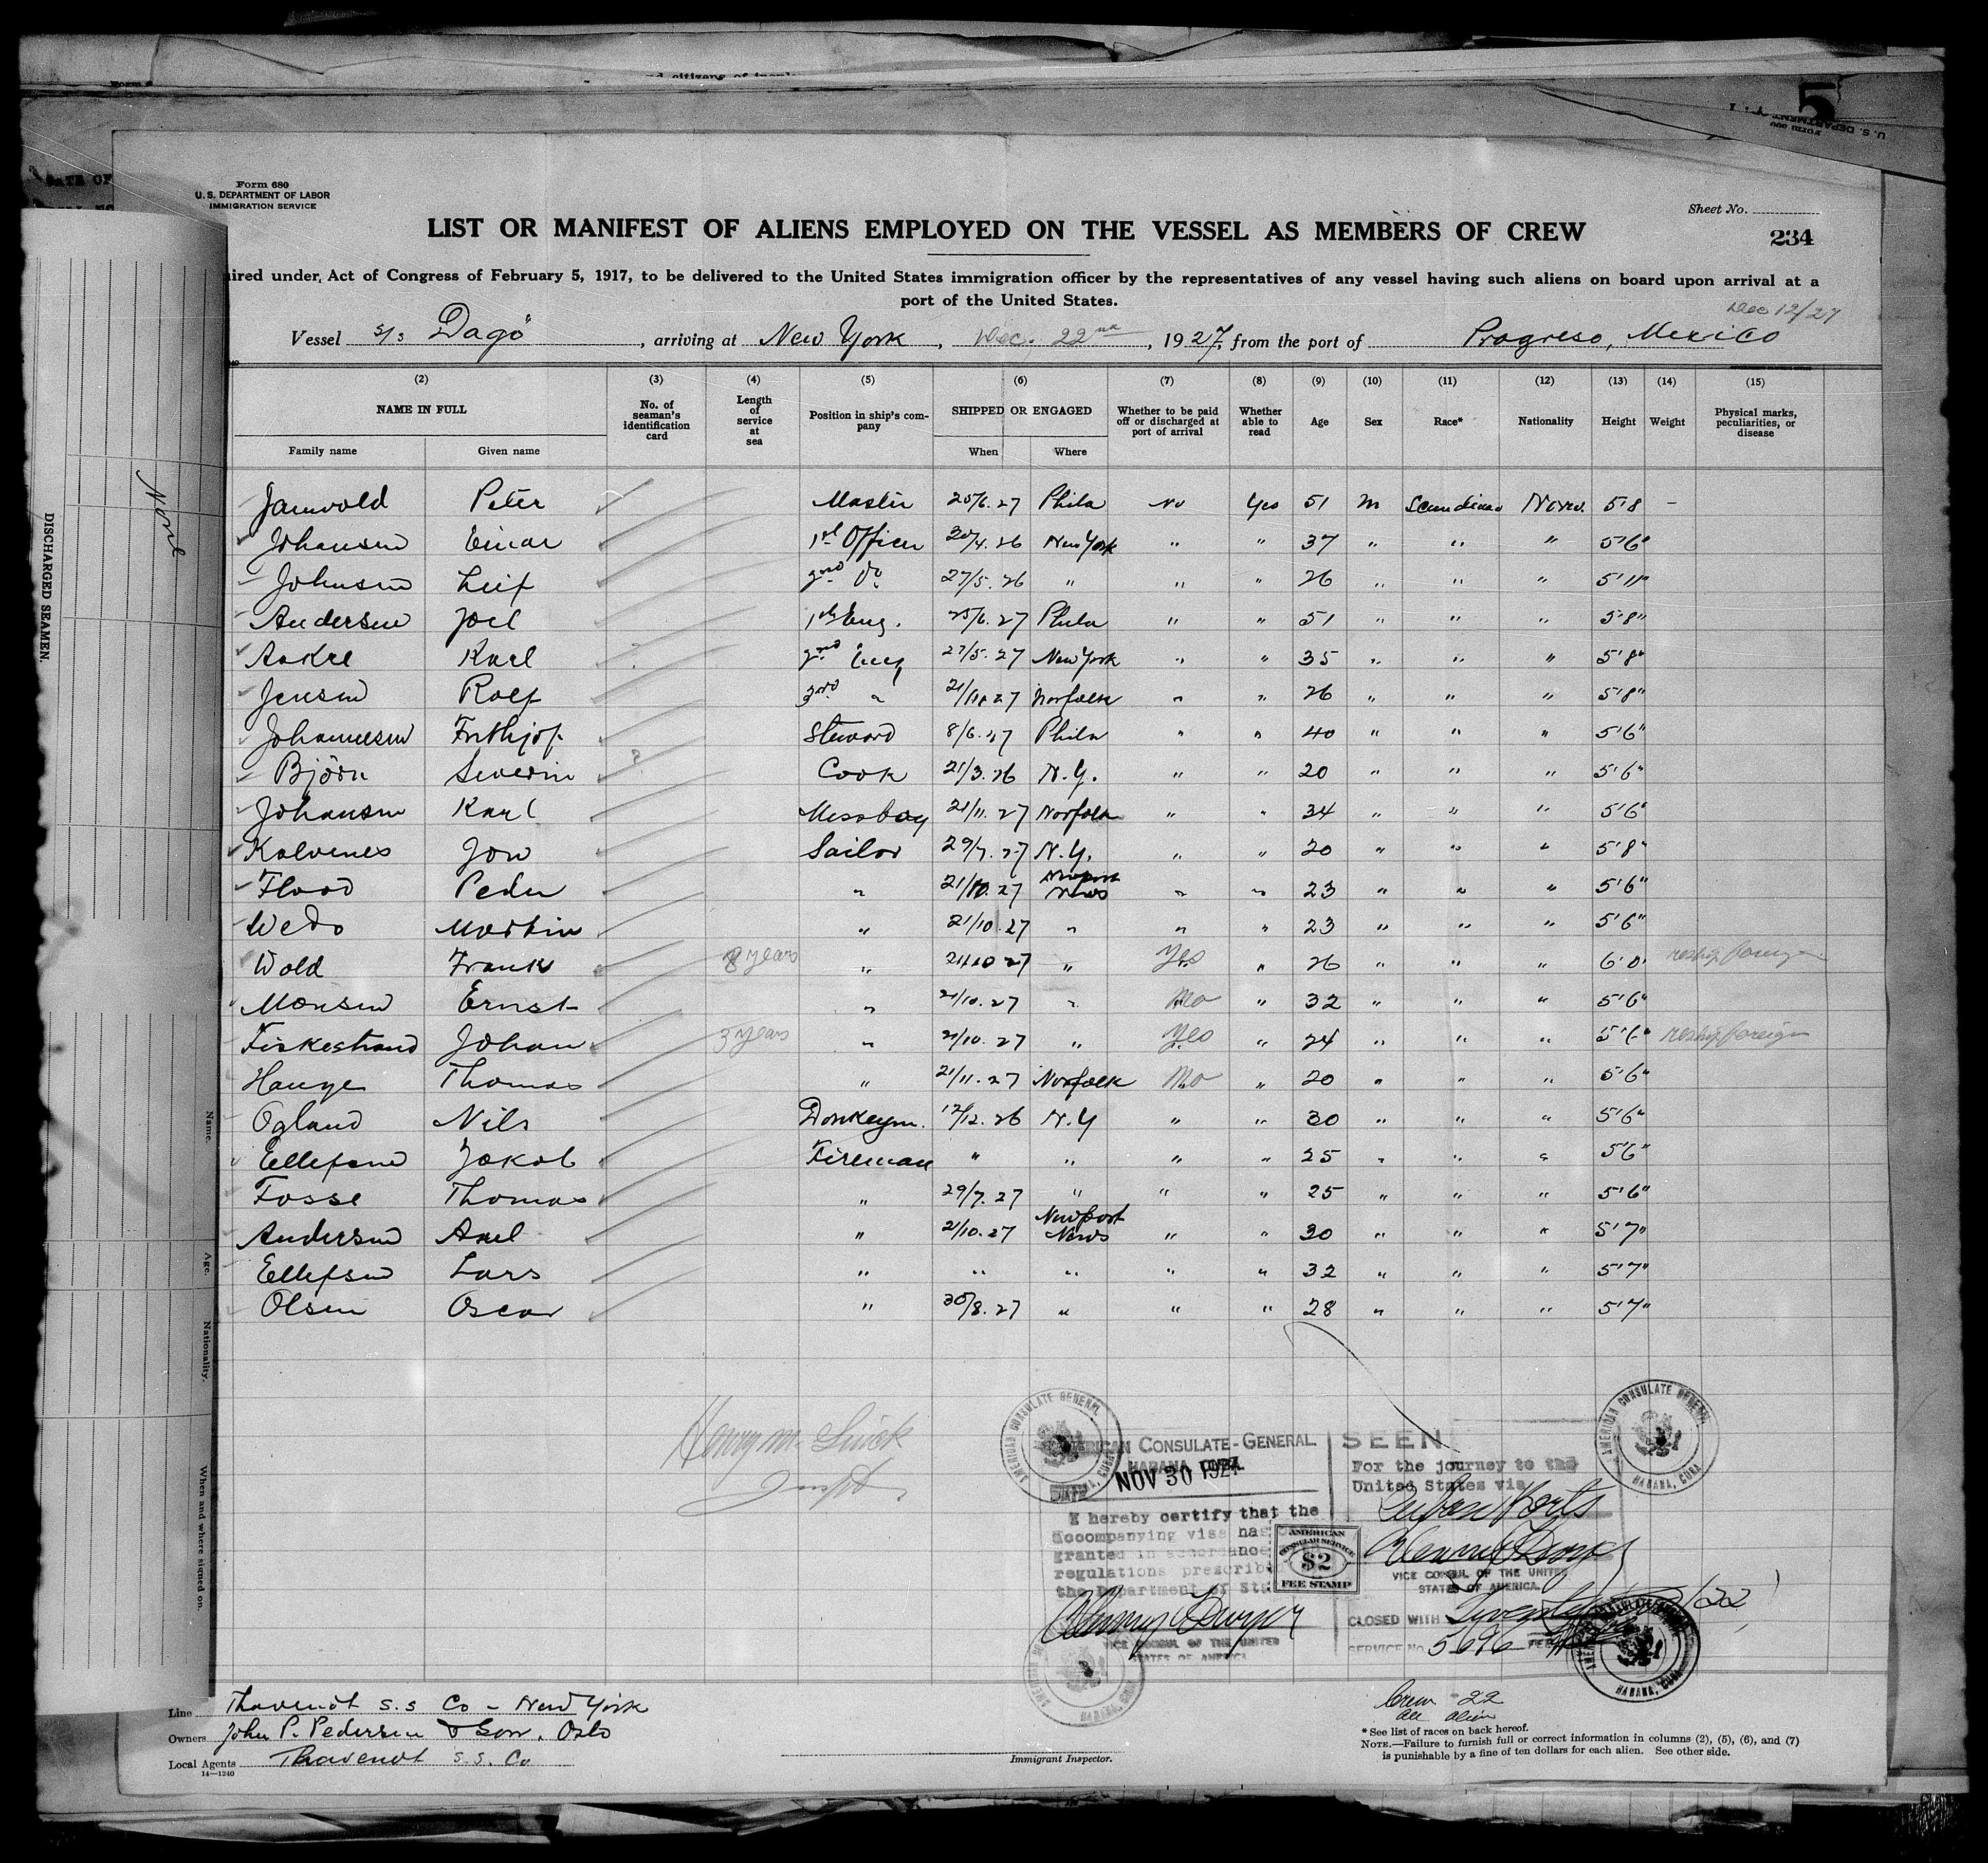 5
U.S. DEPARTMENT
Form 680
U. S. DEPARTMENT OF LABOR
IMMIGRATION SERVICE
Sheet No.
LIST OR MANIFEST OF ALIENS EMPLOYED ON THE VESSEL AS MEMBERS OF CREW
234
ired under Act of Congress of February 5, 1917, to be delivered to the United States immigration officer by the representatives of any vessel having such aliens on board upon arrival at a
port of the United States.
Dec 12/27
Vessel s/s Dagö, arriving at New York, Dec. 22nd, 1927, from the port of Progreso, Mexico
(2) (3) (4) (5) (6) (7) (8) (9) (10) (11) (12) (13) (14) (15)
NAME IN FULL No. of seaman's identification card Length of service at sea Position in ship's company SHIPPED OR ENGAGED Whether to be paid off or discharged at port of arrival Whether able to read Age Sex Race* Nationality Height Weight Physical marks, peculiarities, or disease
Family name Given name When Where
Peter Master 25/6.27 Phila No Yes 51 M Scandinav Norw. 5'8 -
Johansen Einar 1st Officer 20/4.26 New York " " 37 " " " 5'6"
Johnsen Leif 2nd Do 27/5.26 " " " 26 " " " 5'11"
Andersen Joel 1st Eng. 25/6.27 Phila " " 51 " " " 5'8"
Aakre Karl 2nd Eng 27/5.27 New York " " 35 " " " 5'8"
Jensen Rolf 3rd " 21/11.27 Norfolk " " 26 " " " 5'8"
Johannesen Frithjof Steward 8/6.27 Phila " " 40 " " " 5'6"
Björn Severin ? Cook 21/3.26 N.Y. " " 20 " " " 5'6"
Johansen Karl Messboy 21/11.27 Norfolk " " 34 " " " 5'6"
Kalvenes Jon Sailor 29/7.27 N.Y. " " 20 " " " 5'8"
Flood Peder " 21/10.27 Newport News " " 23 " " " 5'6"
Wedo Martin " 21/10.27 " " " 23 " " " 5'6"
Wold Frank 8 years " 21/10 27 " Yes " 26 " " " 6'0" reship
Monsen Ernst " 21/10.27 " No " 32 " " " 5'6"
Fiskestrand Johan 3 years " 21/10.27 " Yes " 24 " " " 5'6" reship foreign
Hauge Thomas " 21/11.27 Norfolk No " 20 " " " 5'6"
Ogland Nils Donkeym. 12/12.26 N.Y " " 30 " " " 5'6"
Ellefsen Jakob Fireman " " " " 25 " " " 5'6"
Fosse Thomas " 29/7.27 " " " 25 " " " 5'6"
Andersen Axel " 21/10.27 Newport News " " 30 " " " 5'7"
Ellefsen Lars " " " " " 32 " " " 5'7"
Olsen Oscar " 30/8.27 " " " 28 " " " 5'7"
None
DISCHARGED SEAMEN.
Name.
Age.
Nationality.
When and where signed on.
Henry M.
AMERICAN CONSULATE GENERAL
HABANA, CUBA
AMERICAN CONSULATE-GENERAL
HABANA, CUBA
DATE NOV 30 1927
I hereby certify that the
accompanying visa has
granted in accordance
regulations prescrib
the Department of Sta
VICE CONSUL OF THE UNITED
STATES OF AMERICA
AMERICAN
CONSULAR SERVICE
$2
FEE STAMP
SEEN
For the journey to the
United States via
Cuban Ports
VICE CONSUL OF THE UNITED
STATES OF AMERICA.
CLOSED WITH 122
SERVICE No. 5696 FEE
AMERICAN CONSULATE GENERAL
HABANA, CUBA
HABANA, CUBA
Line S.S Co - New York
Owners John P. Pedersen & Son, Oslo
Local Agents S.S. Co
14—1240
Immigrant Inspector.
Crew 22
All alien
*See list of races on back hereof.
NOTE.—Failure to furnish full or correct information in columns (2), (5), (6), and (7)
is punishable by a fine of ten dollars for each alien. See other side.